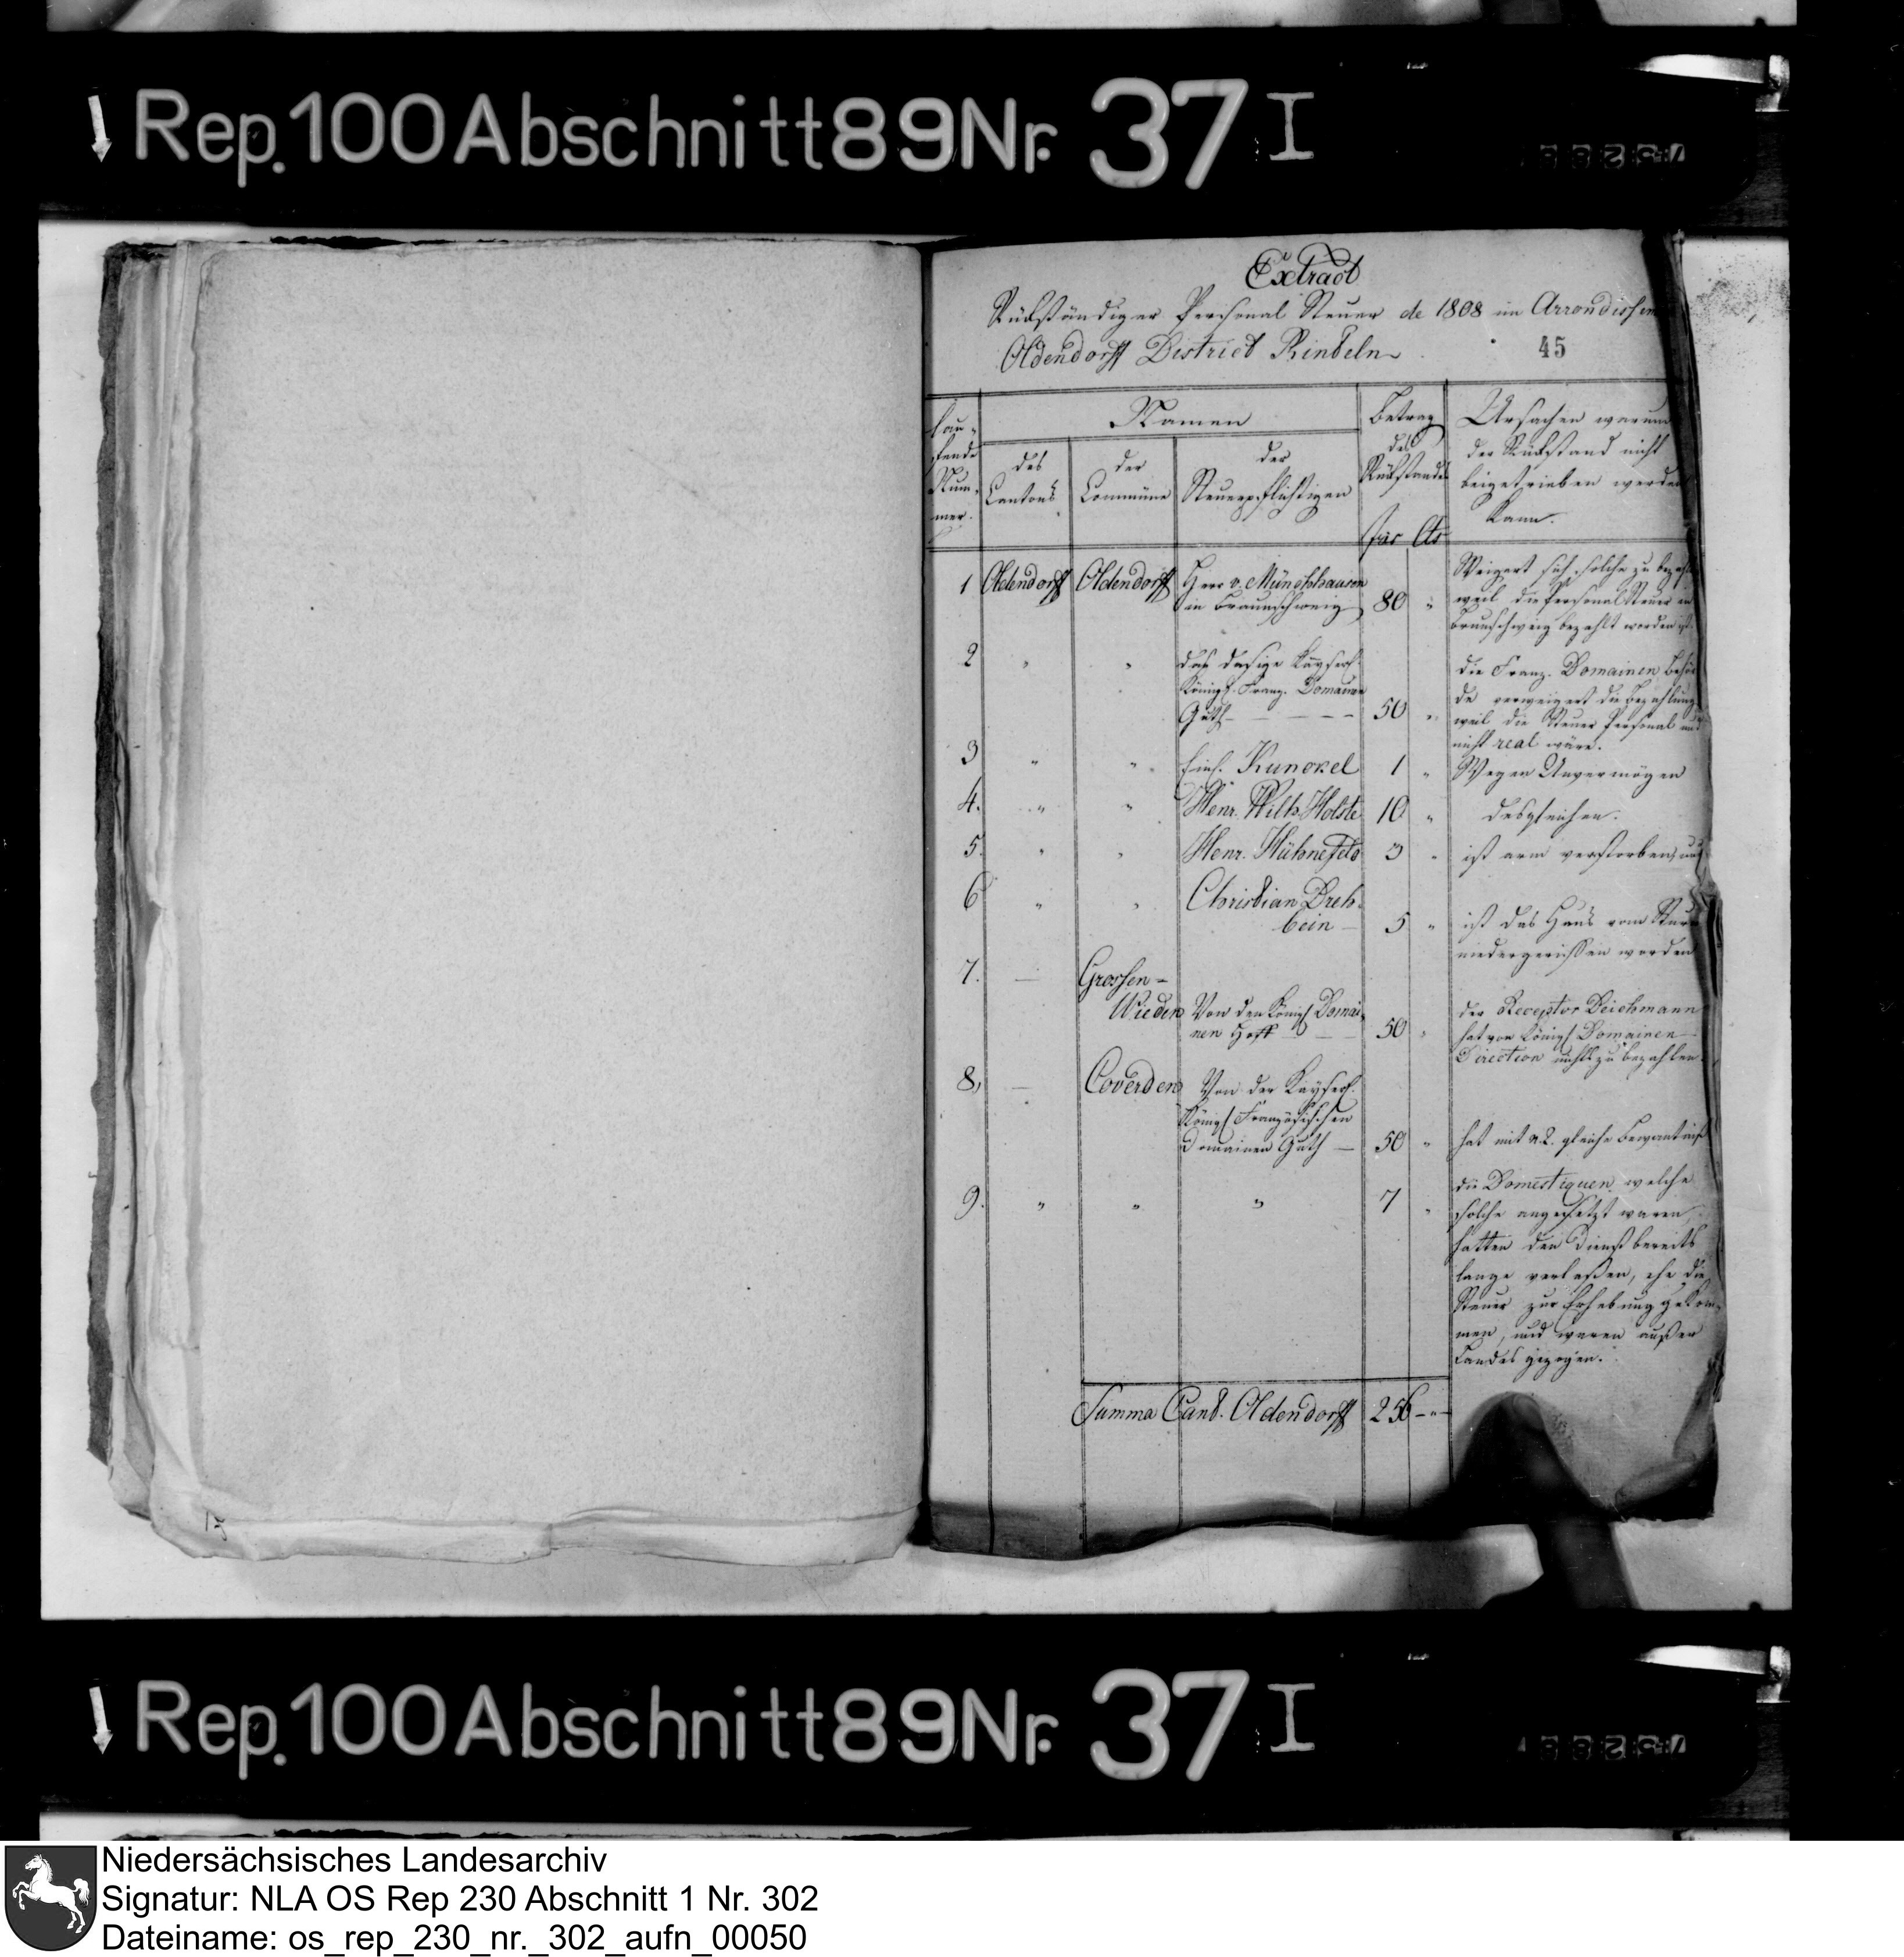 Rep. 100 Abschnitt 89 Nr. 37 I
Extract
Rükständiger Personal Steuer de 1808 im Arrondissem
Oldendorff District Rinteln
45
Lau-
fende
Num-
mer.
Namen
des
Cantons
der
Commüne
der
Steuerpflichtigen
Betrag
des
Rükstandes
frs Cts
Ursachen warum
der Rükstand nicht
beigetrieben werden
kann.
1 Oldendorff Oldendorff Herr v. Münchhausen
in Braunschweig 80 "
Weigert sich solche zu bezahl
weil die Personal Steuer in
Braunschweig bezahlt worden ist.
2 " " das dasige Kayserl.
Königl. Franz. Domainen
Guth - - - - 50 "
die Franz. Domainen Behör
de verweigert die Bezahlung
weil die Steuer Personal und
nicht real wäre.
3 " " Kunckel 1 " Wegen Unvermögen
4. " " Henr. Wilh. Holste 10 " desgleichen.
5. " " Henr. Hühnefeld 3 " ist arm verstorben, und
6 " " Christian Dreh-
bein - 5 "
ist das Haus vom Sturm
niedergerissen worden
7. — Grossen-
Wieden Von den Königl Domai-
nen Hoff - - 50 "
der Receptor Deichmann
hat von Königl Domainen
Direction nichts zu bezahlen.
8, — Coverden Von der Kayserl.
Königl Französischen
Domainen Guth — 50 " hat mit N 2. gleiche Bewantniß
9. " " " 7 "
die Domestiquen welche
solche angesetzt waren,
hatten den Dienst bereits
lange verlaßen, ehe die
Steuer zur Erhebung gekom-
men, und waren außer
Landes gezogen.
Summa Cant. Oldendorff 256 - " -
Rep. 100 Abschnitt 89 Nr. 37 I
Niedersächsisches Landesarchiv
Signatur: NLA OS Rep 230 Abschnitt 1 Nr. 302
Dateiname: os_rep_230_nr._302_aufn_00050